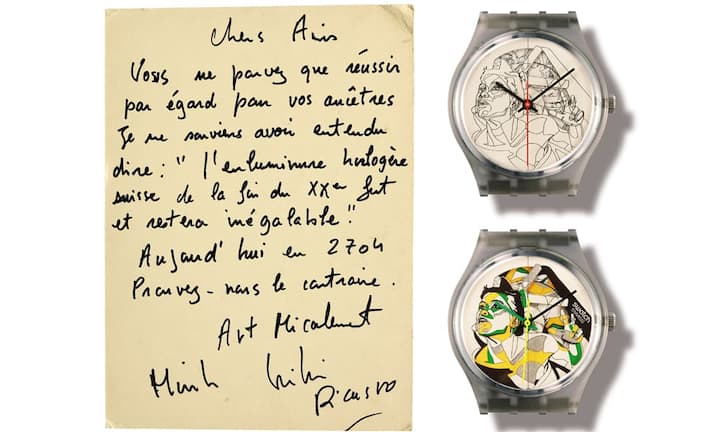 Chers Amis
Vous ne pouvez que réussir
par égard pour vos ancêtres
Je me souviens avoir entendu
dire : "l'enluminure horlogère
suisse de la fin du XXem fut
et restera inégalable"
Aujourd'hui en 2704
Prouvez-nous le contraire.
Art Micalement
Picasso
swatch